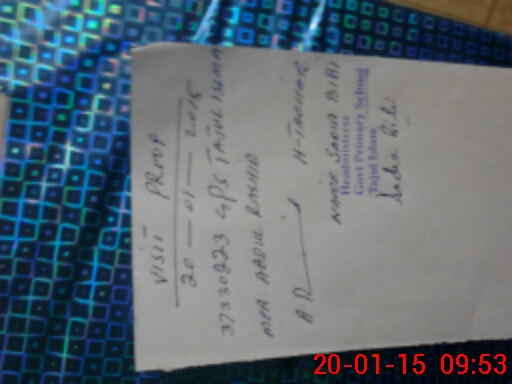 VISIT PROOF
20 — 01 — 2015
37330223 GPS TAJUL ISLAM
MEA ABDUL RASHID
H-TEACHER
NAME SADIA BIBI
Headmistress
Govt Primary School
Tajul Islam
Sadia Bibi
20-01-15 09:53